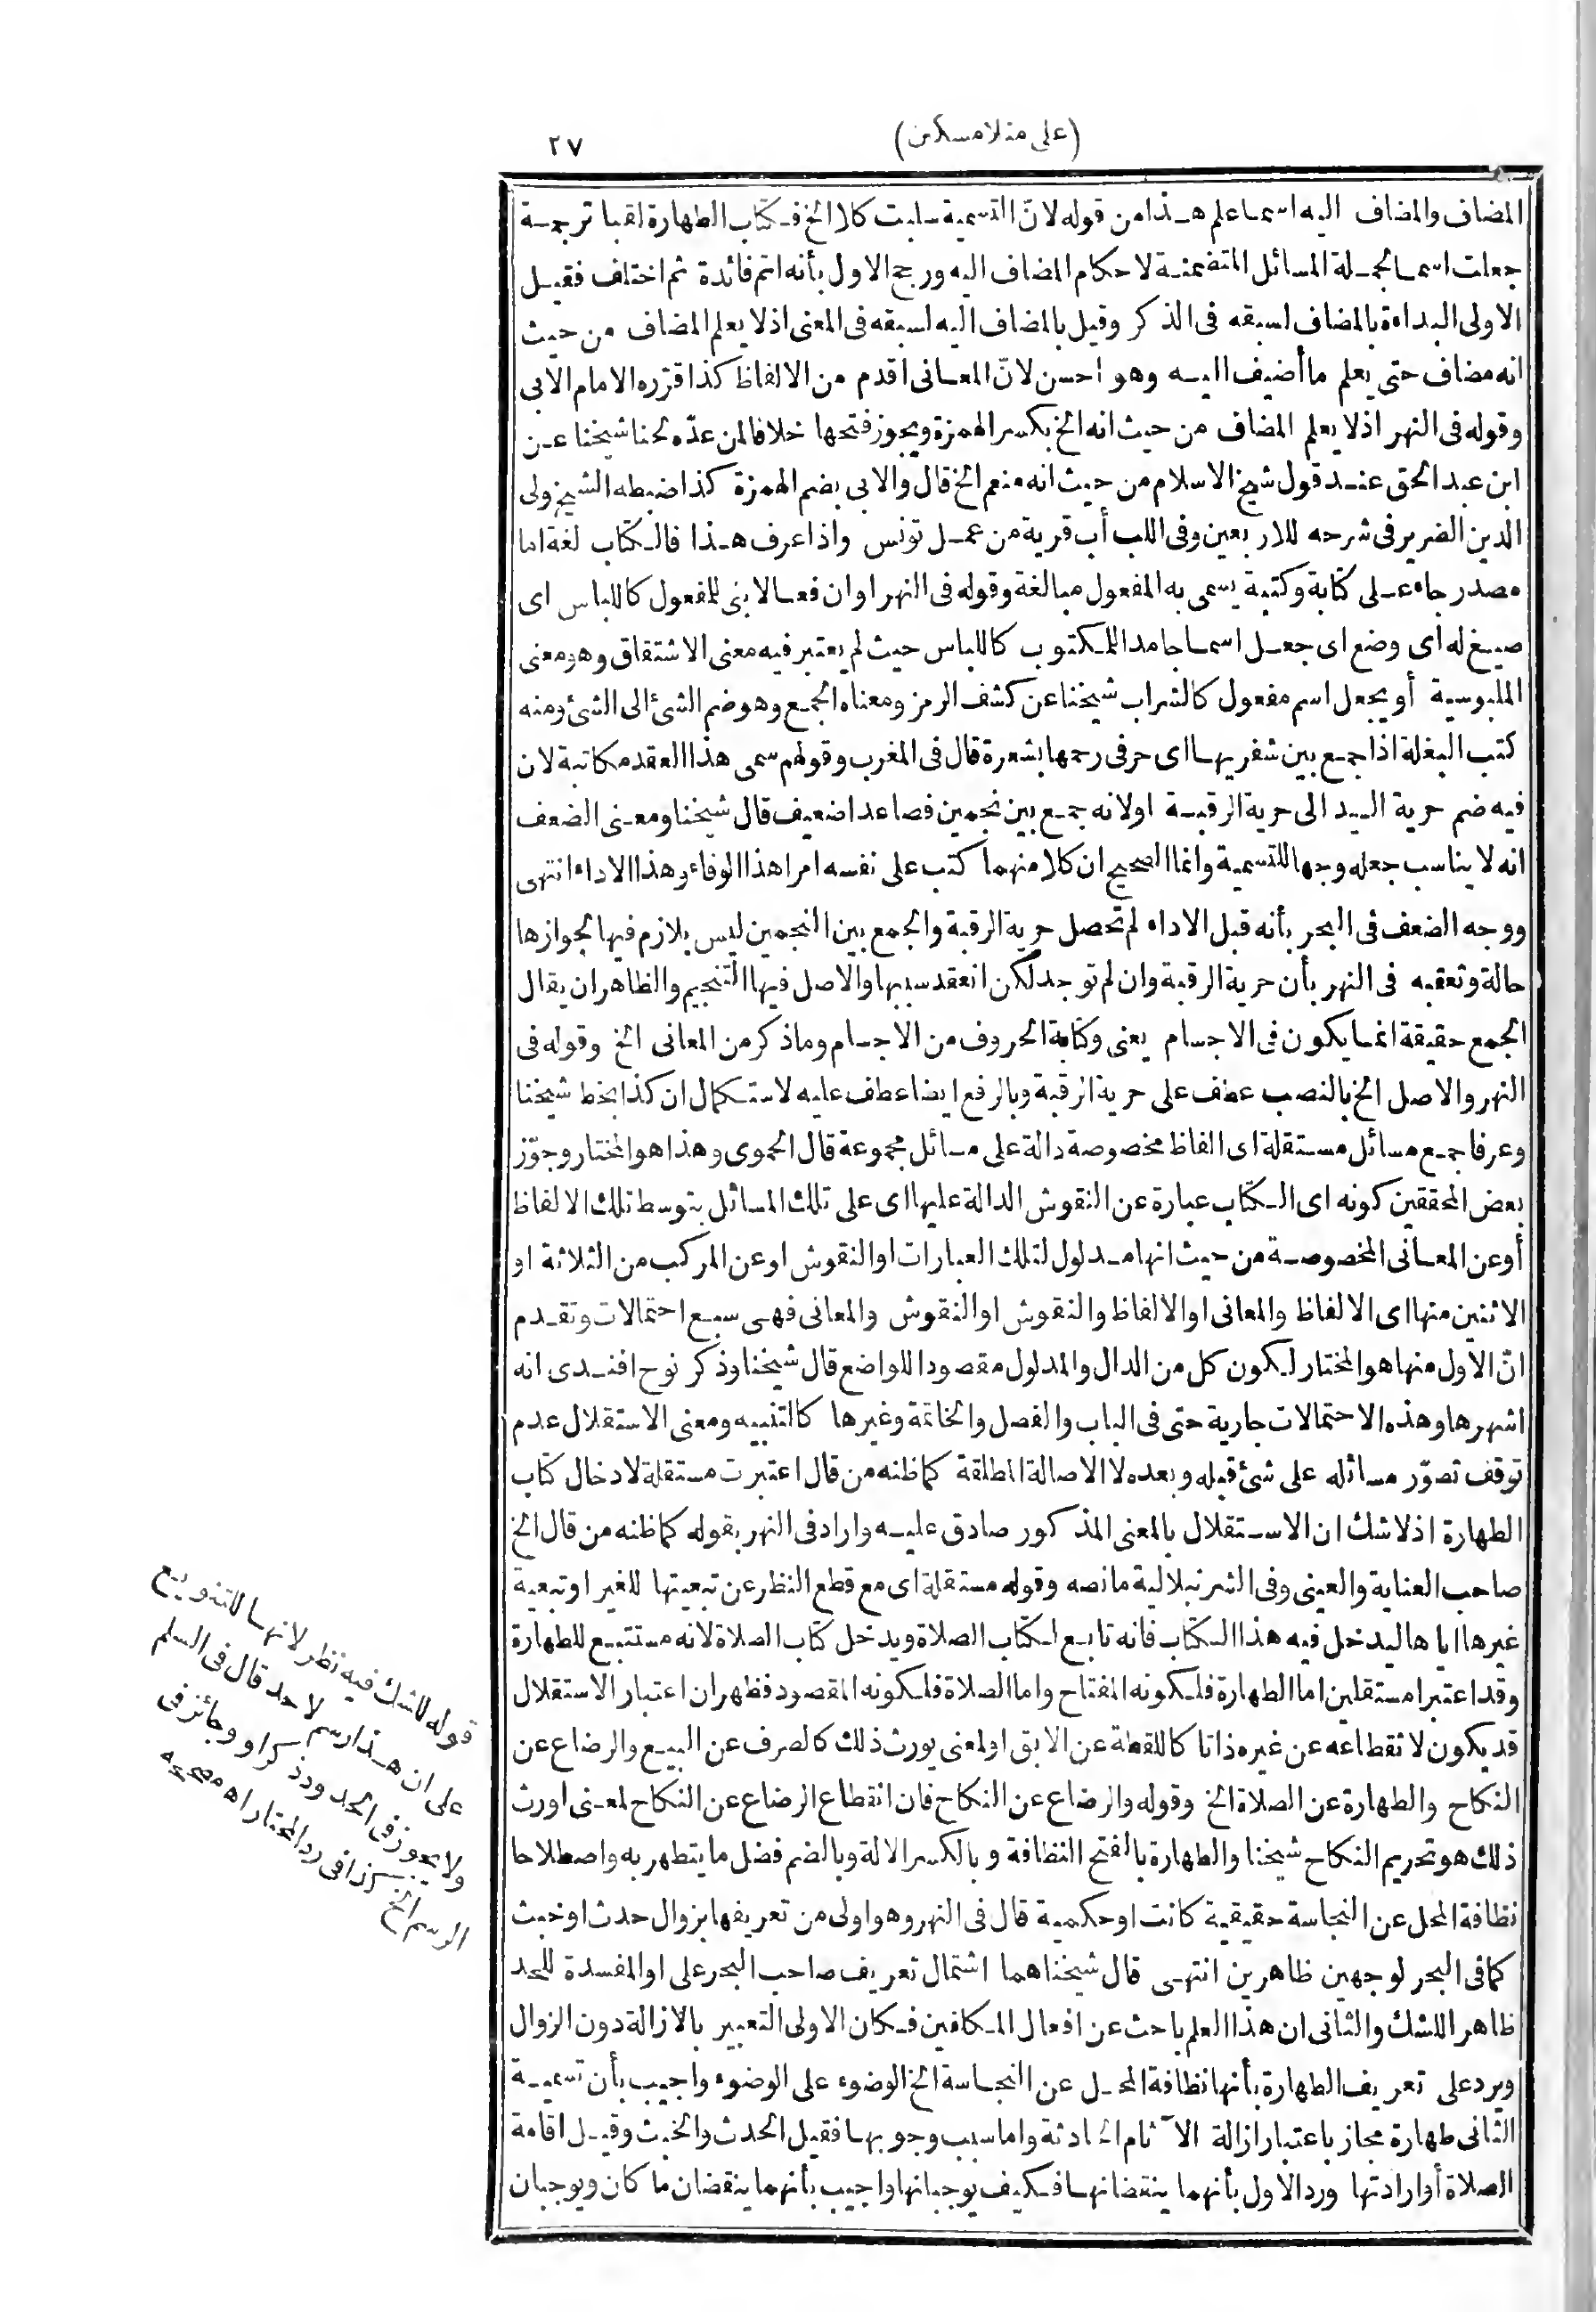 (على منلا مسكين)
٢٧
المضاف والمضاف اليه اسما علم هذا من قوله لانّ التسمية سلبت كلا الخ فكتاب الطهارة لقبا ترجمة
جعلت اسما لجملة المسائل المتضمنة لاحكام المضاف اليه ورجح الاول بأنه اتم فائدة ثم اختلف فقيل
الاولى البداءة بالمضاف لسبقه فى الذكر وقيل بالمضاف اليه لسبقه فى المعنى اذ لا يعلم المضاف من حيث
انه مضاف حتى يعلم ما أضيف اليه وهو احسن لانّ المعانى أقدم من الالفاظ كذا قرّره الامام الابى
وقوله فى النهر اذ لا يعلم المضاف من حيث انه الخ بكسر الهمزة ويجوز فتحها خلافا لمن عدّه لحنا شيخنا عن
ابن عبد الحق عند قول شيخ الاسلام من حيث انه منعم الخ قال والابى بضم الهمزة كذا ضبطه الشيخ ولى
الدين الضرير فى شرحه للاربعين وفى اللب أب قرية من عمل تونس واذا عرف هذا فالكتاب لغة اما
مصدر جاء على كتابة وكتبة يسمى به المفعول مبالغة وقوله فى النهر او ان فعالا بنى للمفعول كاللباس اى
صيغ له أى وضع اى جعل اسما جامدا للمكتوب كاللباس حيث لم يعتبر فيه معنى الاشتقاق وهو معنى
الملبوسية أو يجعل اسم مفعول كالشراب شيخنا عن كشف الرمز ومعناه الجمع وهو ضم الشئ الى الشئ ومنه
كتب البغلة اذا جمع بين شفريها اى حرفى رحمها بشعرة قال فى المغرب وقولهم سمى هذا العقد مكاتبة لان
فيه ضم حرية اليد الى حرية الرقبة اولانه جمع بين نجمين فصاعدا ضعيف قال شيخنا ومعنى الضعف
انه لا يناسب جعله وجها للتسمية وانما الصحيح ان كلا منهما كتب على نفسه امرا هذا الوفاء وهذا الاداء انتهى
ووجه الضعف فى البحر بأنه قبل الاداء لم تحصل حرية الرقبة والجمع بين النجمين ليس بلازم فيها لجوازها
حالة وتعقبه فى النهر بأن حرية الرقبة وان لم توجد لكن انعقد سببها والاصل فيها التنجيم والظاهر ان يقال
الجمع حقيقة انما يكون فى الاجسام يعنى وكتابة الحروف من الاجسام وما ذكر من المعانى الخ وقوله فى
النهر والاصل الخ بالنصب عطف على حرية الرقبة وبالرفع ايضا عطف عليه لاستكمال ان كذا بخط شيخنا
وعرفا جمع مسائل مستقلة اى الفاظ مخصوصة دالة على مسائل مجموعة قال الحموى وهذا هو المختار وجوّز
بعض المحققين كونه اى الكتاب عبارة عن النقوش الدالة عليها اى على تلك المسائل بتوسط تلك الالفاظ
أو عن المعانى المخصوصة من حيث انها مدلول لتلك العبارات او النقوش او عن المركب من الثلاثة او
الاثنين منها اى الالفاظ والمعانى او الالفاظ والنقوش او النقوش والمعانى فهى سبع احتمالات وتقدم
انّ الاول منها هو المختار لكون كل من الدال والمدلول مقصودا للواضع قال شيخنا وذكر نوح افندى انه
اشهرها وهذه الاحتمالات جارية حتى فى الباب والفصل والخاتمة وغيرها كالتنبيه ومعنى الاستقلال عدم
توقف تصوّر مسائله على شئ قبله وبعده لا الاصالة المطلقة كما ظنه من قال اعتبرت مستقلة لادخال كتاب
الطهارة اذ لا شك ان الاستقلال بالمعنى المذكور صادق عليه واراد فى النهر بقوله كما ظنه من قال الخ
صاحب العناية والعينى وفى الشرنبلالية ما نصه وقوله مستقلة اى مع قطع النظر عن تبعيتها للغير او تبعية
غيرها اياها ليدخل فيه هذا الكتاب فانه تابع لكتاب الصلاة ويدخل كتاب الصلاة لانه مستتبع للطهارة
وقد اعتبرا مستقلين اما الطهارة فلكونه المفتاح واما الصلاة فلكونه المقصود فظهر ان اعتبار الاستقلال
قد يكون لانقطاعه عن غيره ذاتا كاللقطة عن الابق او لمعنى يورث ذلك كالصرف عن البيع والرضاع عن
النكاح والطهارة عن الصلاة الخ وقوله والرضاع عن النكاح فان انقطاع الرضاع عن النكاح لمعنى اورث
ذلك هو تحريم النكاح شيخنا والطهارة بالفتح النظافة وبالكسر الالة وبالضم فضل ما يتطهر به واصطلاحا
نظافة المحل عن النجاسة حقيقية كانت او حكمية قال فى النهر وهو اولى من تعريفها بزوال حدث او خبث
كما فى البحر لوجهين ظاهرين انتهى قال شيخنا هما اشتمال تعريف صاحب البحر على او المفسدة للحد
ظاهر اللشك والثانى ان هذا العلم باحث عن افعال المكلفين فكان الاولى التعبير بالازالة دون الزوال
ويرد على تعريف الطهارة بأنها نظافة المحل عن النجاسة الخ الوضوء على الوضوء واجيب بأن تسمية
الثانى طهارة مجاز باعتبار ازالة الآثام الحادثة واما سبب وجوبها فقيل الحدث والخبث وقيل اقامة
الصلاة أو ارادتها ورد الاول بأنهما ينقضانها فكيف يوجبانها واجيب بأنهما ينقضان ما كان ويوجبان
قوله للشك فيه نظر لانها للتنويع
على ان هذا رسم لا حد قال فى السلم
ولا يجوز فى الحدود ذكر او وجائز فى
الرسم الخ كذا فى رد المحتار اه مصححه